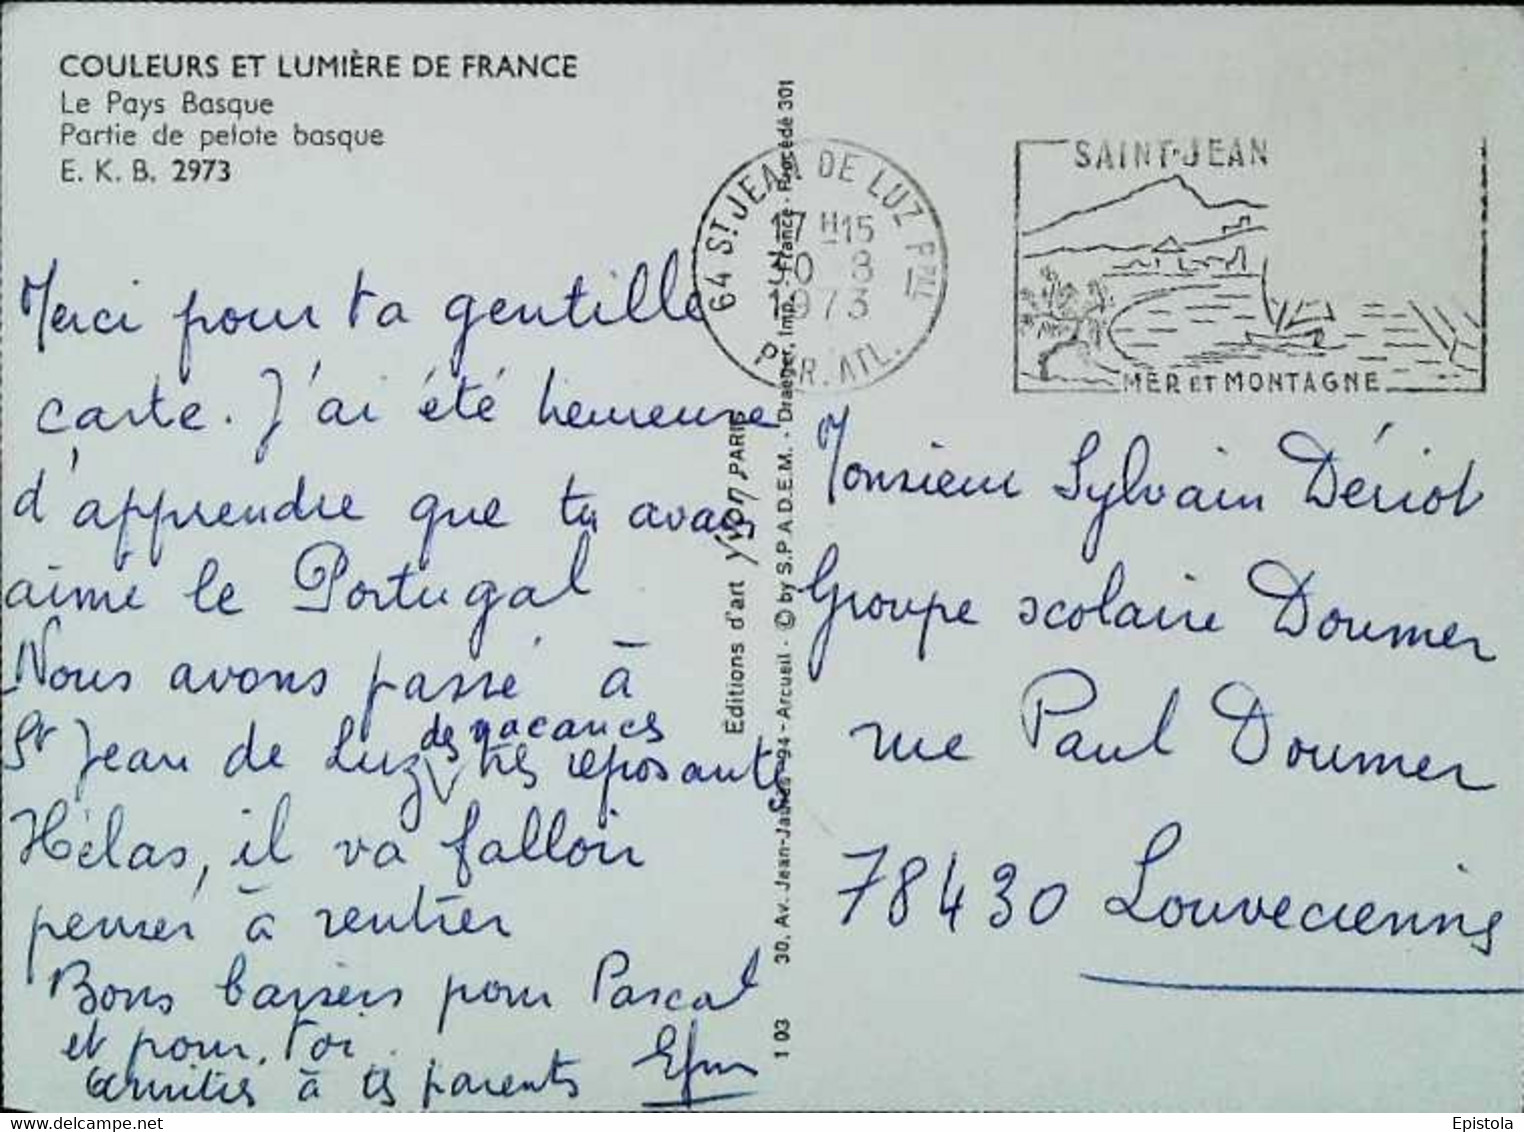 COULEURS ET LUMIÈRE DE FRANCE
Le Pays Basque
Partie de pelote basque
E. K. B. 2973
Merci pour ta gentille
carte. J'ai été heureuse
d'apprendre que tu avais
aimé le Portugal
Nous avons passé à
St Jean de Luz des vacances très reposantes
Hélas, il va falloir
penser à rentrer
Bons baisers pour Pascal
et pour toi
amitiés à tes parents
Editions d'art yvon PARIS
30, Av. Jean-Jaurès 94 - Arcueil - © by S.P.A.D.E.M. - Draeger, Imp. - France - Procédé 301
1 03
64 ST JEAN DE LUZ PPAL
17 H15
30 - 8
1973
PYR. ATL.
SAINT-JEAN
MER ET MONTAGNE
Monsieur Sylvain Dériot
Groupe scolaire Doumer
rue Paul Doumer
78430 Louveciennes
Epistola